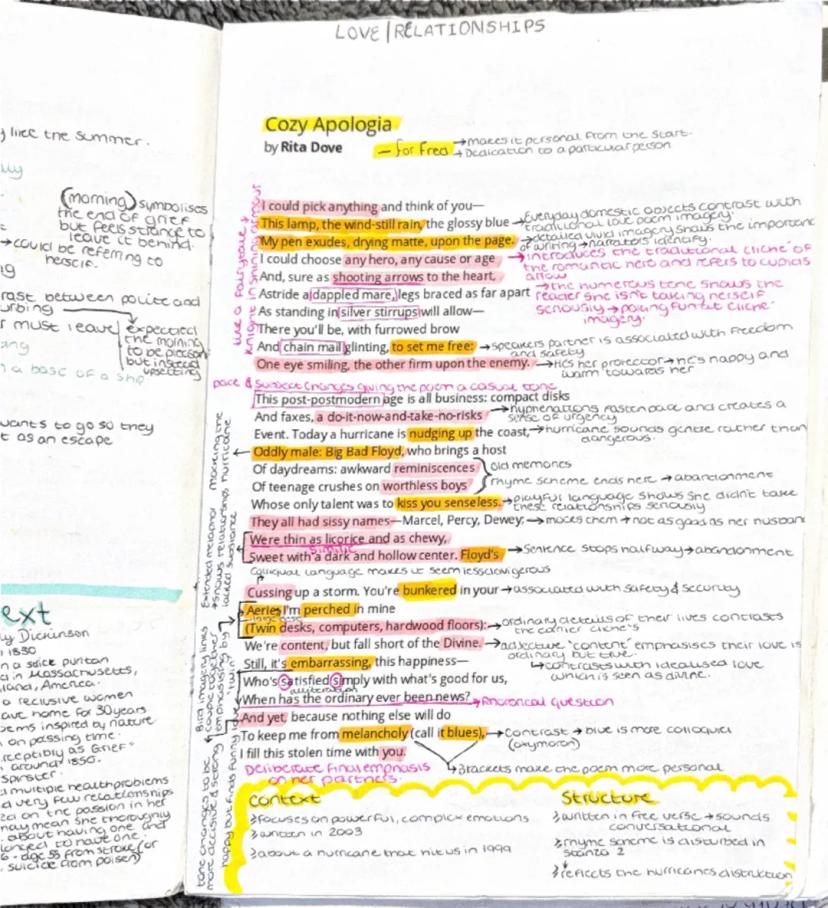 LOVE/RELATIONSHIPS
y like the summer.
(morning) symbolises
the end of grief
but feels strange to
leave it behind.
→ could be referring to
herself.
rast between polite and
urbing
r must leave
expected
the morning
to be pleasant
but instead
upsetting
n a base of a ship
wants to go so they
t as an escape
ext
y Dickinson
1830
n a strict puritan
in Massachusetts,
land, America.
a reclusive women
ave home for 30 years
oems inspired by nature
on passing time.
rceptibly as Grief"
around 1850.
spinster.
d multiple health problems
d very few relationships
ed on the passion in her
may mean she thoroughly
about having one and
anged to have one.
6 - age 55 from stroke (or
suicide from poison)
Cozy Apologia
by Rita Dove
— for Fred → makes it personal from the start.
→ Dedication to a particular person
I could pick anything and think of you—
This lamp, the wind-still rain, the glossy blue → Everyday domestic objects contrast with
traditional love poem imagery.
My pen exudes, drying matte, upon the page. → detailed vivid imagery shows the importance
of writing → narrators identity.
I could choose any hero, any cause or age → introduces the traditional cliche of
the romantic hero and refers to cupids
arrow
And, sure as shooting arrows to the heart,
Astride a dappled mare, legs braced as far apart → the humerous tone shows the
reader she isn't taking herself
seriously → poking fun at cliche
imagery.
As standing in silver stirrups will allow—
There you'll be, with furrowed brow
And chain mail glinting, to set me free: → speakers partner is associated with freedom
and safety
One eye smiling, the other firm upon the enemy. → He's her protector → he's happy and
warm towards her
like a fairytale → knight in shining armour
pace & subject changes giving the poem a casual tone
This post-postmodern age is all business: compact disks
And faxes, a do-it-now-and-take-no-risks → hyphenations fasten pace and creates a
sense of urgency
Event. Today a hurricane is nudging up the coast, → hurricane sounds gentle rather than
dangerous.
Oddly male: Big Bad Floyd, who brings a host
Of daydreams: awkward reminiscences old memories
Of teenage crushes on worthless boys rhyme scheme ends here → abandonment
Whose only talent was to kiss you senseless. → playful language shows she didn't take
these relationships seriously
They all had sissy names—Marcel, Percy, Dewey; → mocks them → not as good as her husband
Were thin as licorice and as chewy,
simile
Sweet with a dark and hollow center. Floyd's → Sentence stops halfway → abandonment
Extended metaphor mocking the hurricane
→ shows relationships lacked substance
colloquial language makes it seem less dangerous
Cussing up a storm. You're bunkered in your → associated with safety & security
Aerie, I'm perched in mine
(Twin desks, computers, hardwood floors): → ordinary details of their lives contrasts
the earlier cliche's
We're content, but fall short of the Divine. → adjective "content" emphasises their love is
ordinary but true
↳ contrasts with idealised love
which is seen as divine.
Still, it's embarrassing, this happiness—
Who's satisfied simply with what's good for us,
alliteration
When has the ordinary ever been news? → Rhetorical question
And yet, because nothing else will do
To keep me from melancholy (call it blues), → contrast → blue is more colloquial
(oxymoron)
I fill this stolen time with you.
↳ Brackets make the poem more personal
Deliberate final emphasis
on her partners.
Bird imagery links couple together
emphasising by 'twin'
tone changes to be
more decisive & strong
happy but finds funny love
Context
focuses on powerful, complex emotions
written in 2003
about a hurricane that hit us in 1999
Structure
written in free verse → sounds
conversational
rhyme scheme is disturbed in
stanza 2
reflects the hurricanes distruction